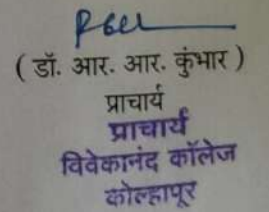 ( डॉ. आर. आर. कुंभार )
प्राचार्य
प्राचार्य
विवेकानंद कॉलेज
कोल्हापूर